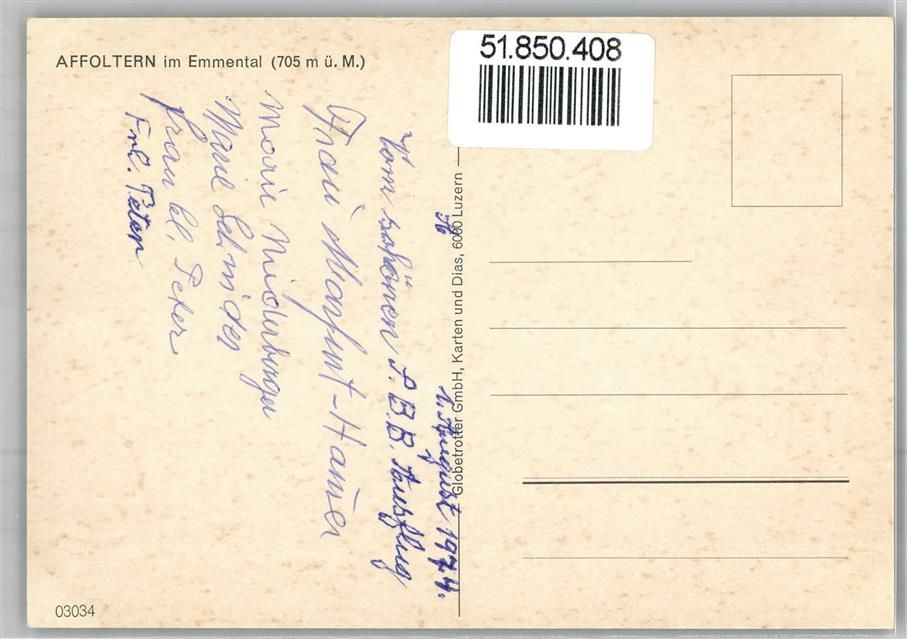 AFFOLTERN im Emmental (705 m ü. M.)
51.850.408
1. August 1974.
Vom schönen S.B.B. Ausflug
Frau Marfurt-Hauser
Marie Niederberger
Marie Schnider
Frau kl. Peter
Frl. Peter
Globetrotter GmbH, Karten und Dias, 6000 Luzern
03034